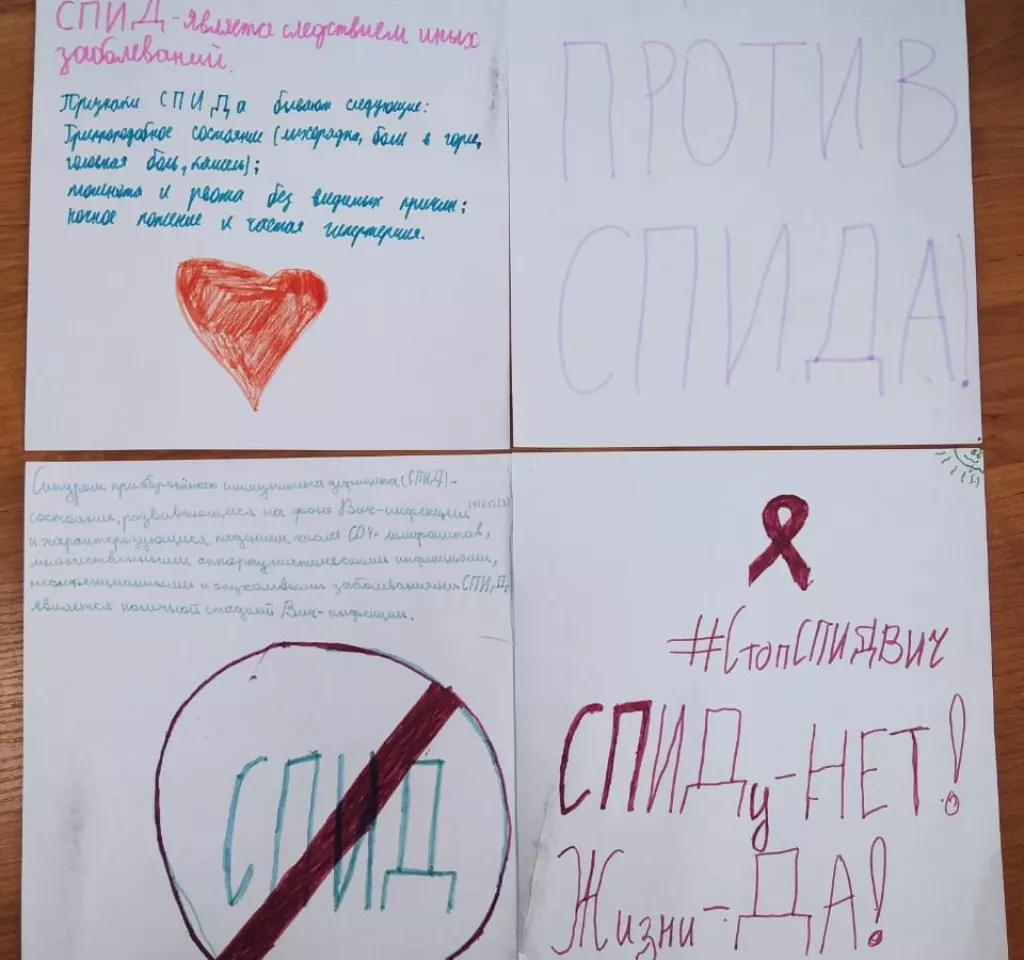 СПИД - является следствием иных
заболеваний.
Признаки СПИДа бывают следующие:
Гриппоподобное состояние (лихорадка, боли в горле,
головная боль, кашель);
тошнота и рвота без видимых причин;
ночное потение и частая гипертермия.
ПРОТИВ
СПИДА!
Синдром приобретённого иммунного дефицита (СПИД) -
состояние, развивающиеся на фоне Вич-инфекции
и характеризующиеся падением числа CD4+ лимфоцитов,
множественными оппортунистическими инфекциями,
неинфекционными и опухолевыми заболеваниями. СПИД
является конечной стадией Вич-инфекции.
СПИД
#СтопСПИДВИЧ
СПИДу-НЕТ!
Жизни-ДА!